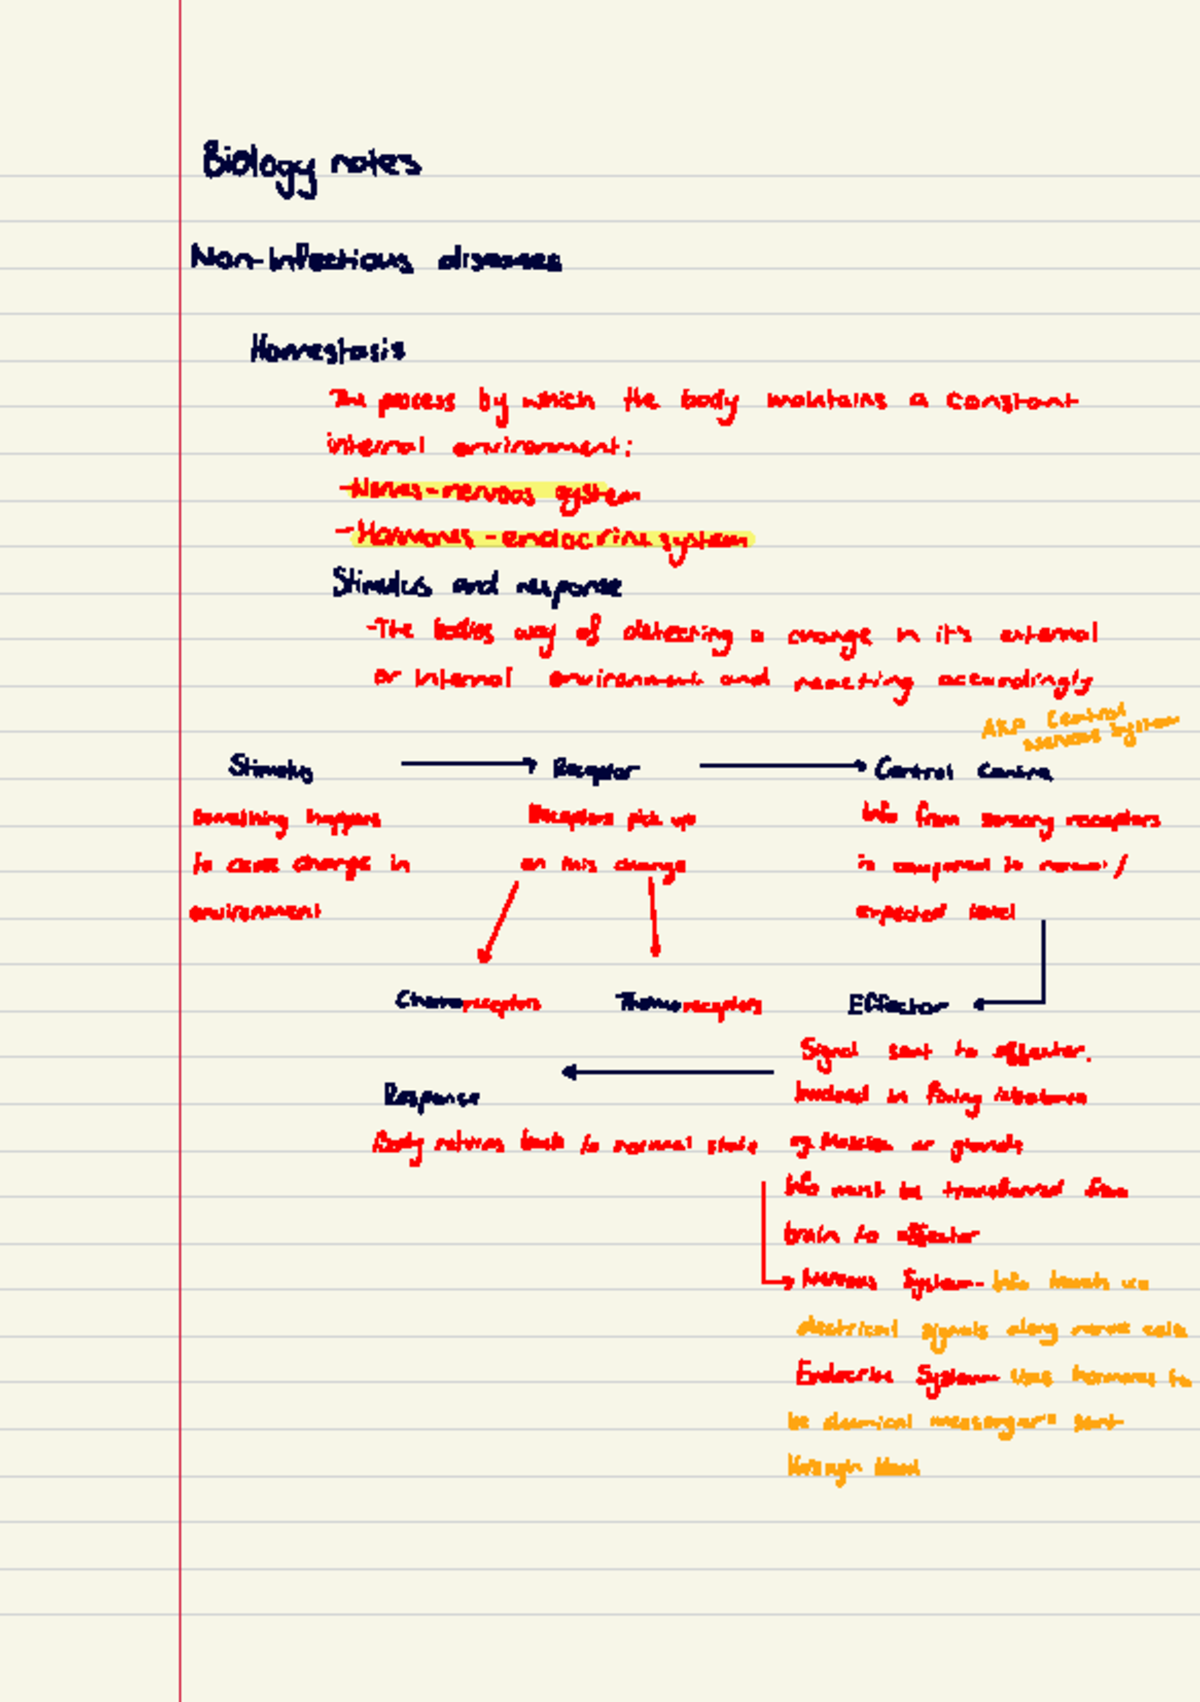 Biology notes
Non-Infectious diseases
Homestasis
The process by which the body maintains a constant
internal environment:
-Nerves-nervous system
-Hormones-endocrine system
Stimulus and response
-The bodies way of detecting a change in it's external
or internal environment and reacting accordingly
AKA Central
nervous system
Stimulus → Receptor → Control Centre
Something happens
to cause change in
environment
Receptors pick up
on this change
Info from sensory receptors
is compared to normal/
expected level
Chemoreceptors
Thermoreceptors
Effector
Signal sent to effector.
Involved in fixing imbalance
eg Muscles or glands
Response
Body returns back to normal state
Info must be transferred from
brain to effector
→ Nervous System- Info travels via
electrical signals along nerve cells
Endocrine System- Uses hormones to
be chemical messenger's sent
through blood